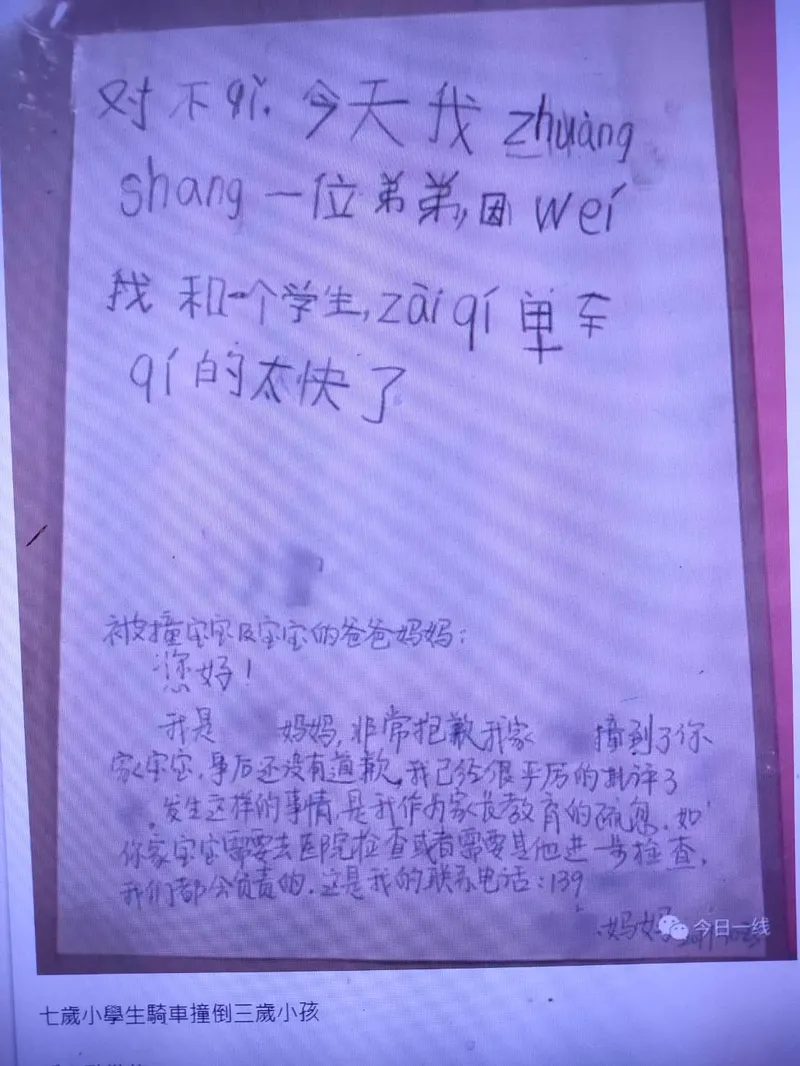 对不qǐ.今天我zhuàng
shang一位弟弟,因weí
我和一个学生,zài qí单车
qí的太快了
被撞宝宝及宝宝的爸爸妈妈:
您好!
我是 妈妈,非常抱歉我家 撞到了你
家宝宝,事后还没有道歉,我已经很严厉的批评了
,发生这样的事情,是我作为家长教育的疏忽.如
你家宝宝需要去医院检查或者需要其他进一步检查,
我们都会负责的.这是我的联系电话:139
妈妈
今日一线
七歲小學生騎車撞倒三歲小孩